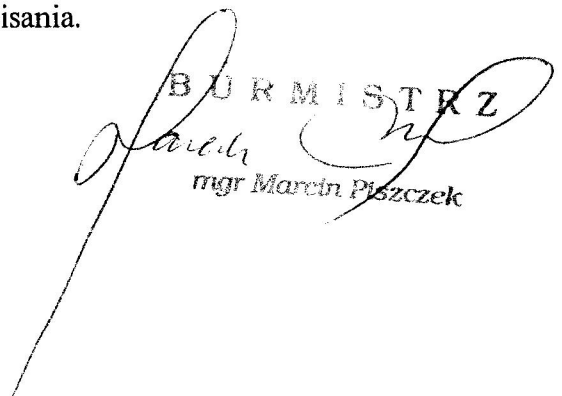 isania.
BURMISTRZ
mgr Marcin Piszczek